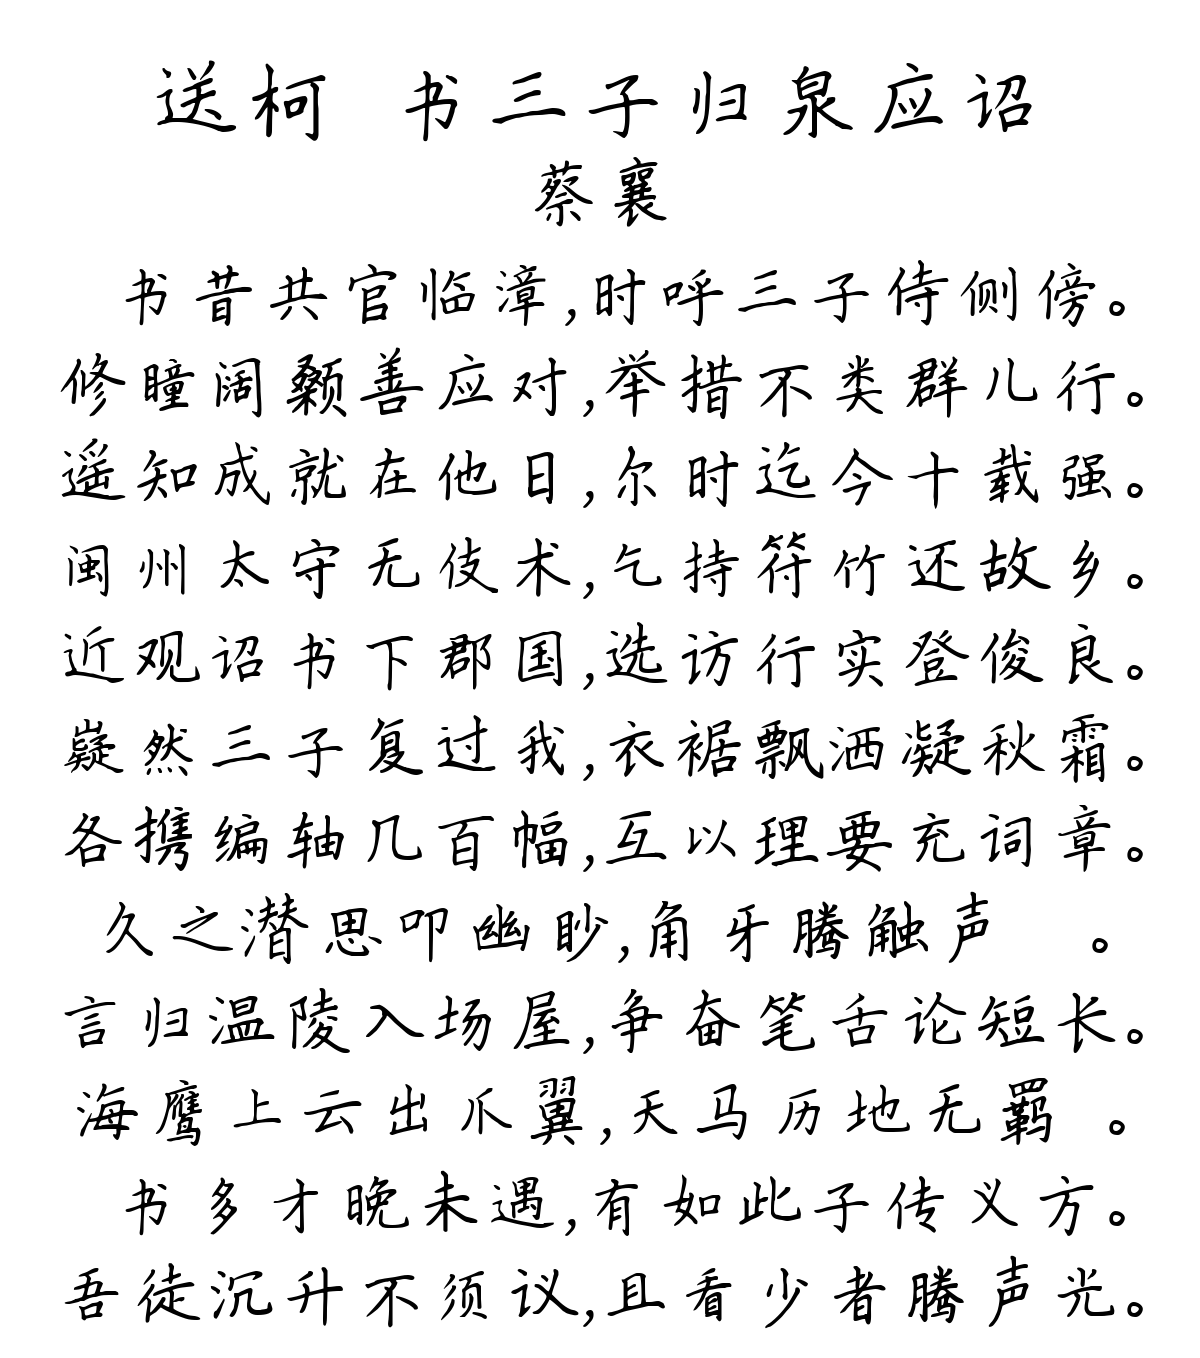 送柯 书三子归泉应诏
蔡襄
书昔共官临漳,时呼三子侍侧傍。
修瞳阔颡善应对,举措不类群儿行。
遥知成就在他日,尔时迄今十载强。
闽州太守无伎术,乞持符竹还故乡。
近观诏书下郡国,选访行实登俊良。
嶷然三子复过我,衣裾飘洒凝秋霜。
各携编轴几百幅,互以理要充词章。
久之潜思叩幽眇,角牙腾触声 。
言归温陵入场屋,争奋笔舌论短长。
海鹰上云出爪翼,天马历地无羁 。
书多才晚未遇,有如此子传义方。
吾徒沉升不须议,且看少者腾声光。